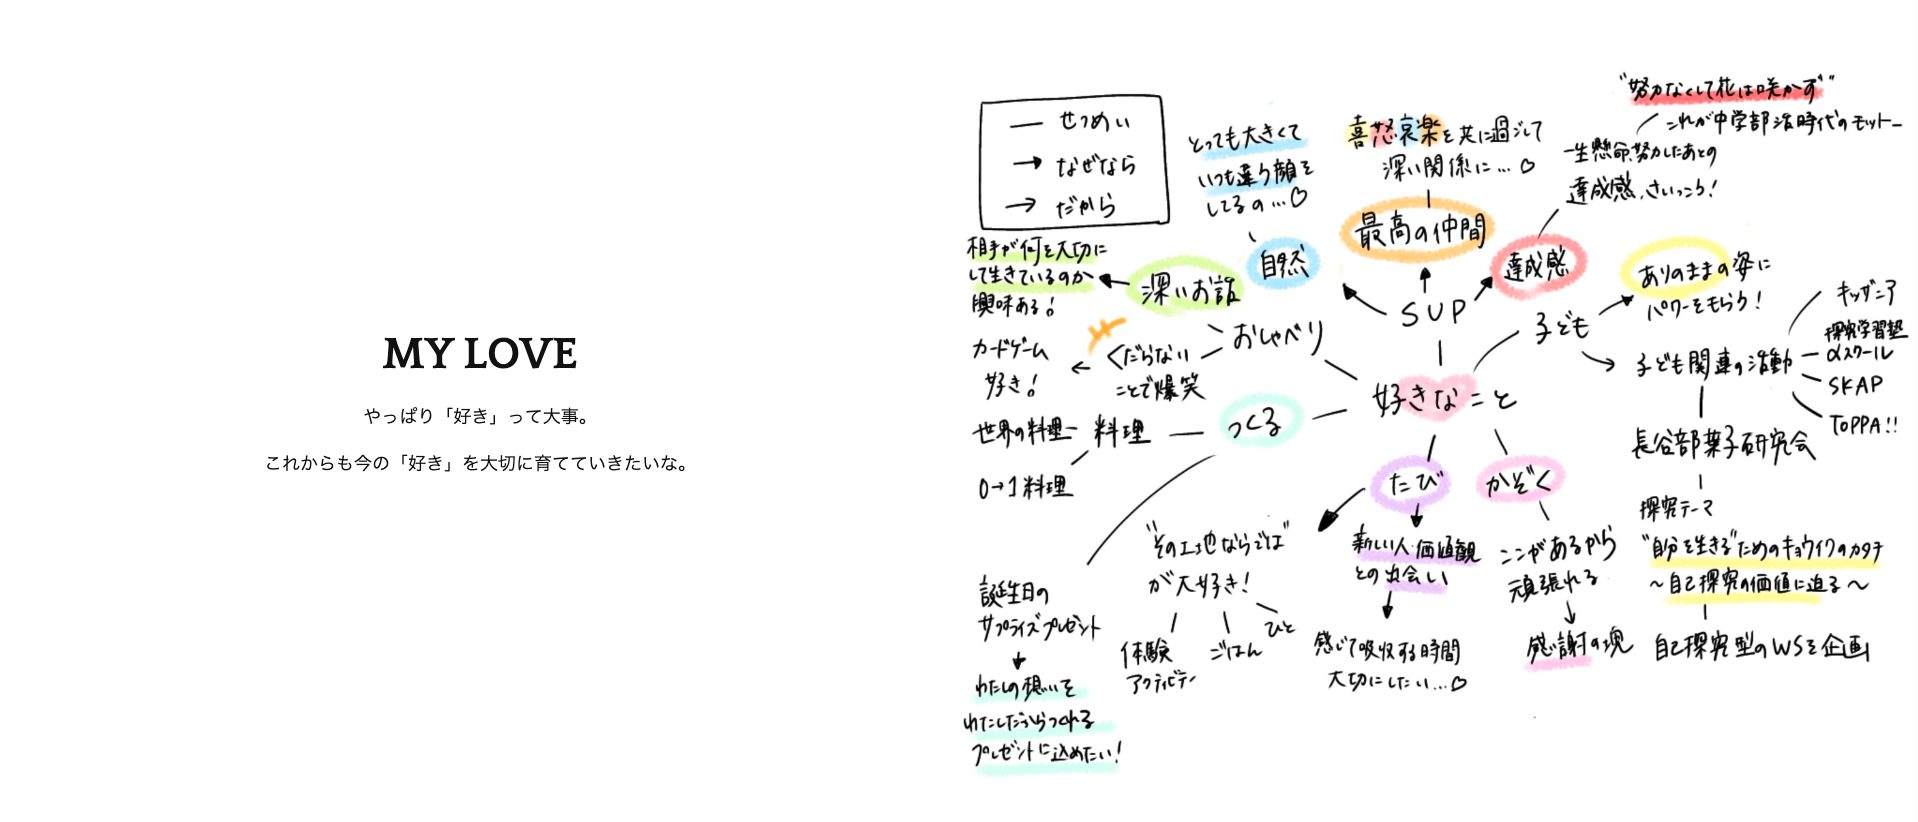 MY LOVE
やっぱり「好き」って大事。
これからも今の「好き」を大切に育てていきたいな。
せつめい
なぜなら
だから
とっても大きくて
いつも違う顔を
してるの…♡
自然
喜怒哀楽を共に過ごして
深い関係に…♡
最高の仲間
"努力なくして花は咲かず"
これが中学部活時代のモットー
一生懸命、努力したあとの
達成感、さいっこう!
達成感
SUP
相手が何を大切に
して生きているのか
興味ある!
深いお話
おしゃべり
くだらない
ことで爆笑
カードゲーム
好き!
子ども
ありのままの姿に
パワーをもらう!
子ども関連の活動
キッザニア
探究学習塾
αスクール
SKAP
TOPPA!!
長谷部葉子研究会
探究テーマ
"自分を生きる"ためのキョウイクのカタチ
〜自己探究の価値に迫る〜
自己探究型のWSを企画
好きなこと
つくる
料理
世界の料理
0→1料理
誕生日の
サプライズプレゼント
わたしの想いを
わたしだからつくれる
プレゼントに込めたい!
たび
"その土地ならでは"
が大好き!
体験
アクティビティ
ごはん
ひと
新しい人・価値観
との出会い
感じて吸収する時間
大切にしたい…♡
かぞく
ここがあるから
頑張れる
感謝の塊